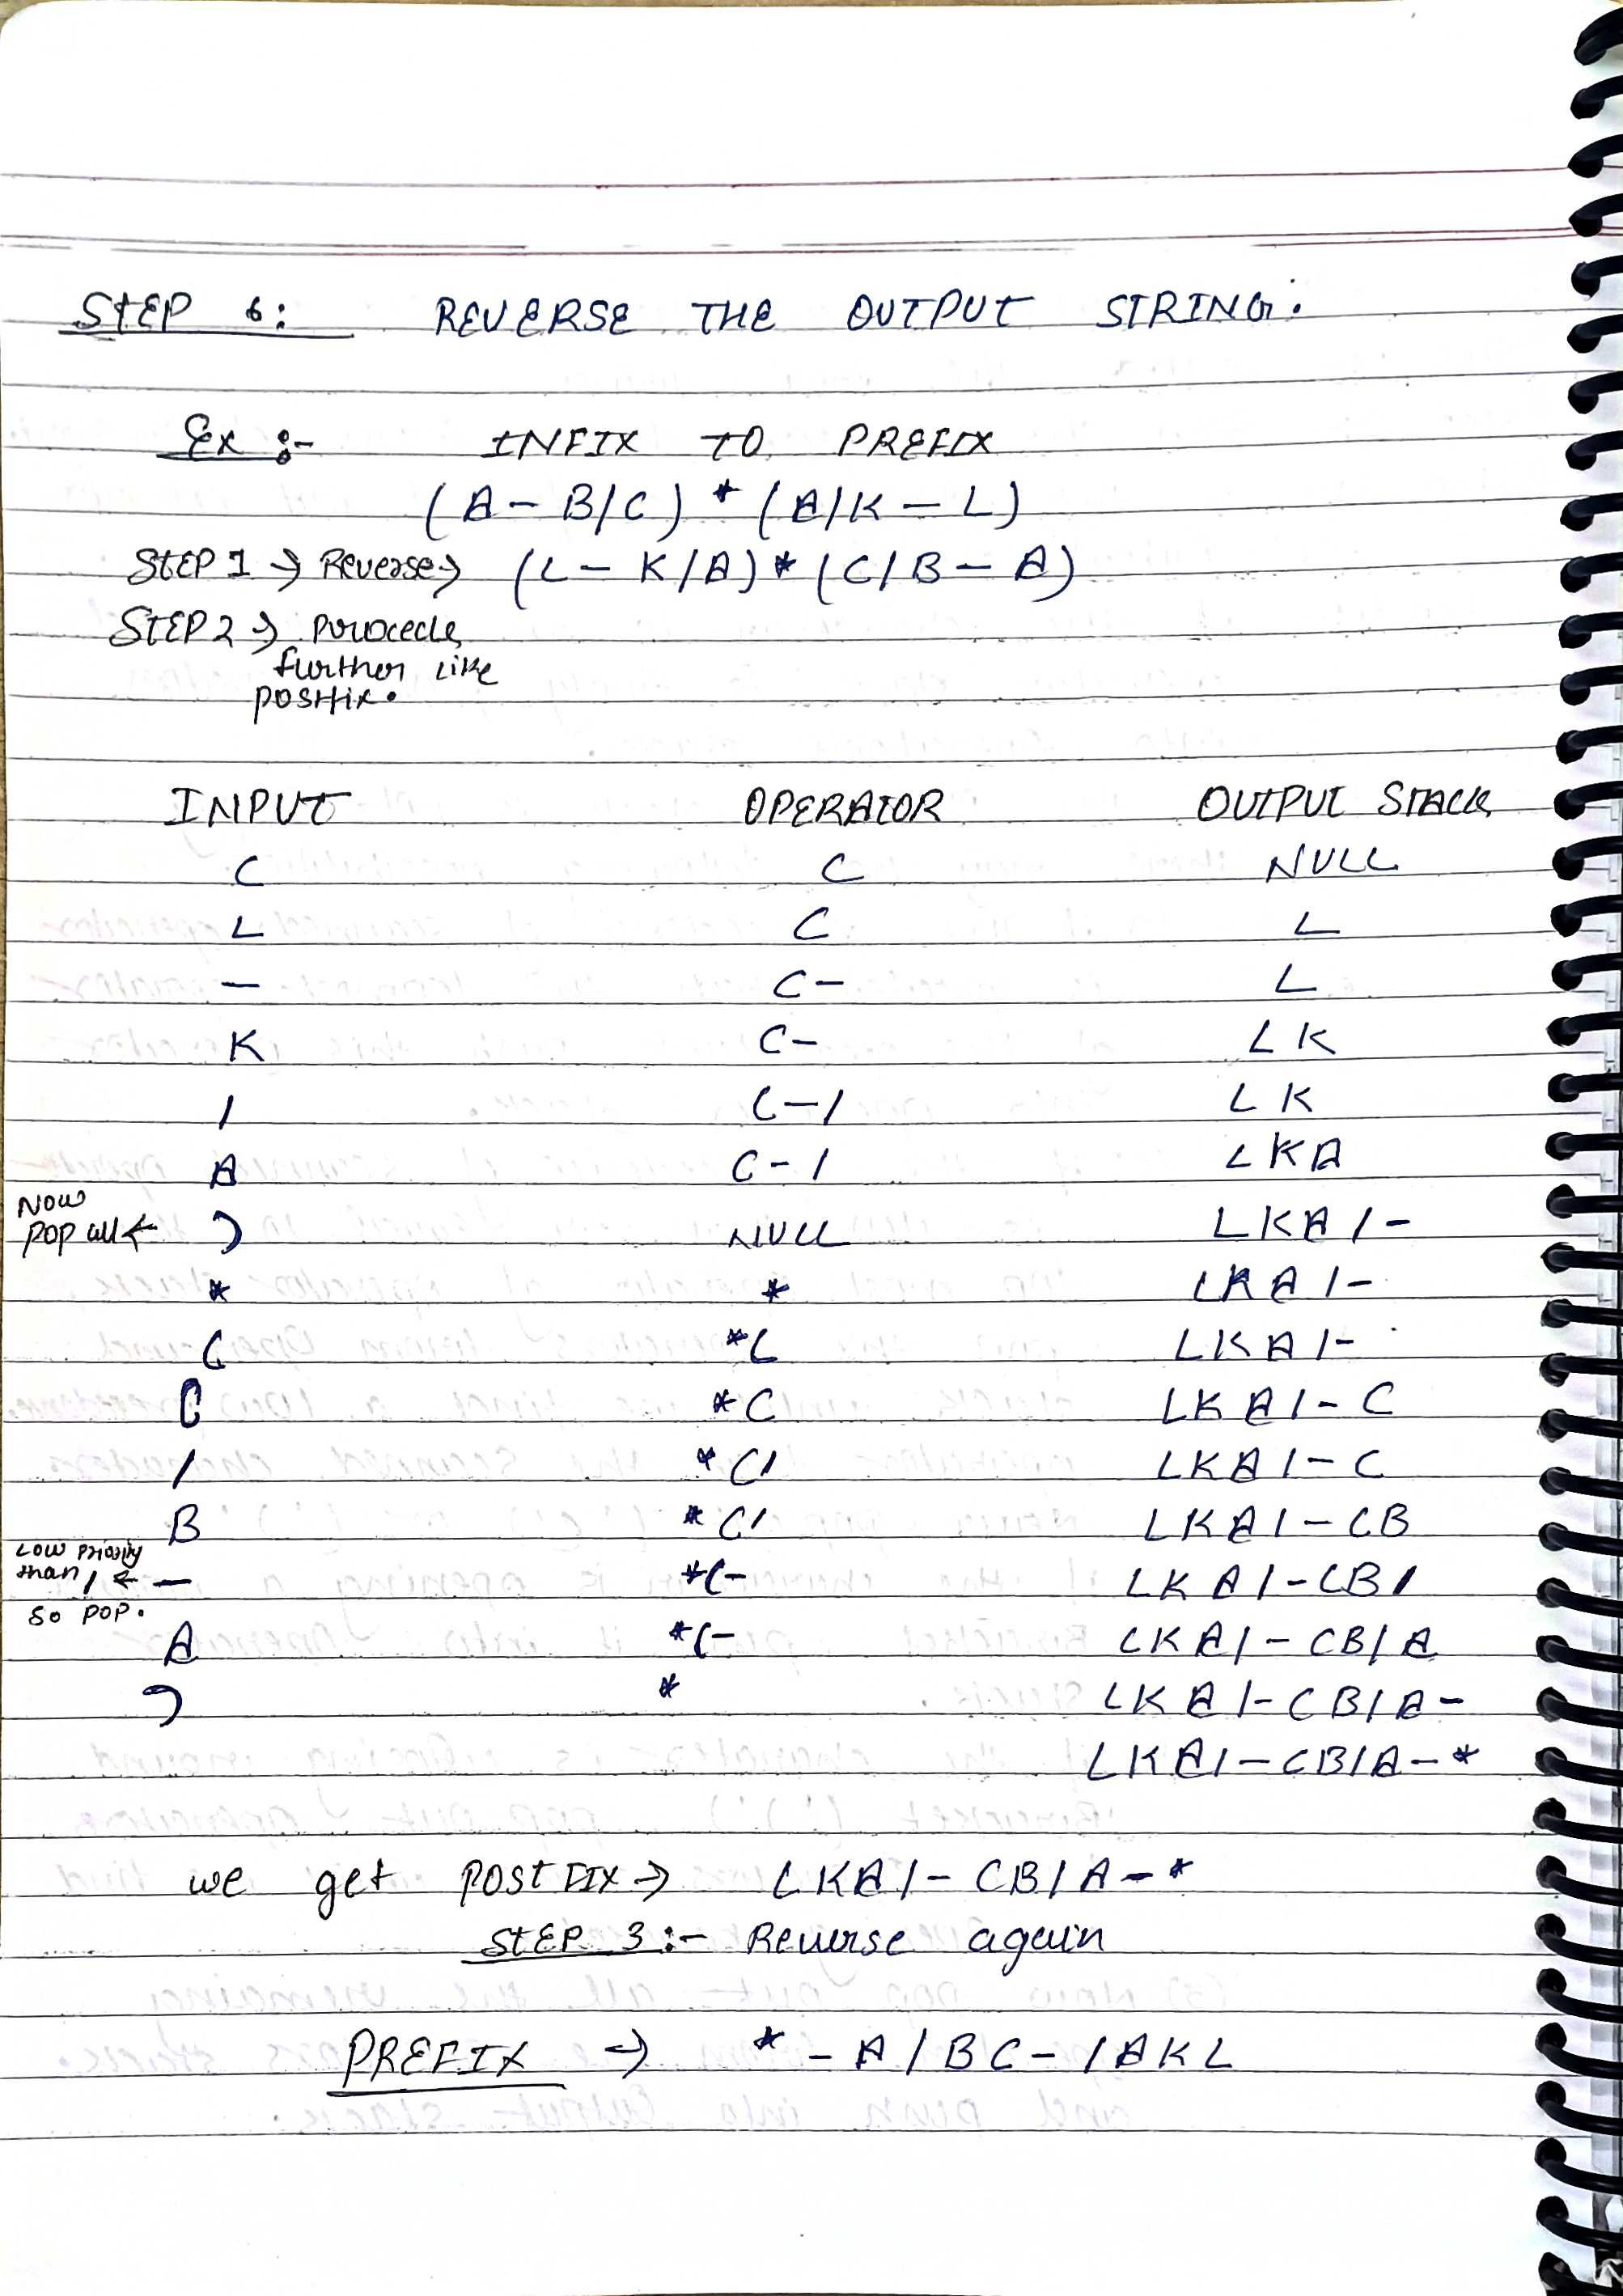 STEP 6: REVERSE THE OUTPUT STRING.
Ex :- INFIX TO PREFIX
(A - B/C) * (A/K - L)
STEP 1 → Reverse → (L - K/A) * (C/B - A)
STEP 2 → Procede
further like
postfix.
INPUT OPERATOR OUTPUT STACK
( ( NULL
L ( L
- (- L
K (- LK
/ (-/ LK
A (-/ LKA
Now
pop all ← ) NULL LKA/-
* * LKA/-
( *( LKA/-
C *( LKA/-C
/ *(/ LKA/-C
B *(/ LKA/-CB
Low priority
than / ← - *(- LKA/-CB/
so pop.
A *(- LKA/-CB/A
) * LKA/-CB/A-
LKA/-CB/A-*
we get POSTFIX → LKA/-CB/A-*
STEP 3 :- Reverse again
PREFIX → *-A/BC-/AKL